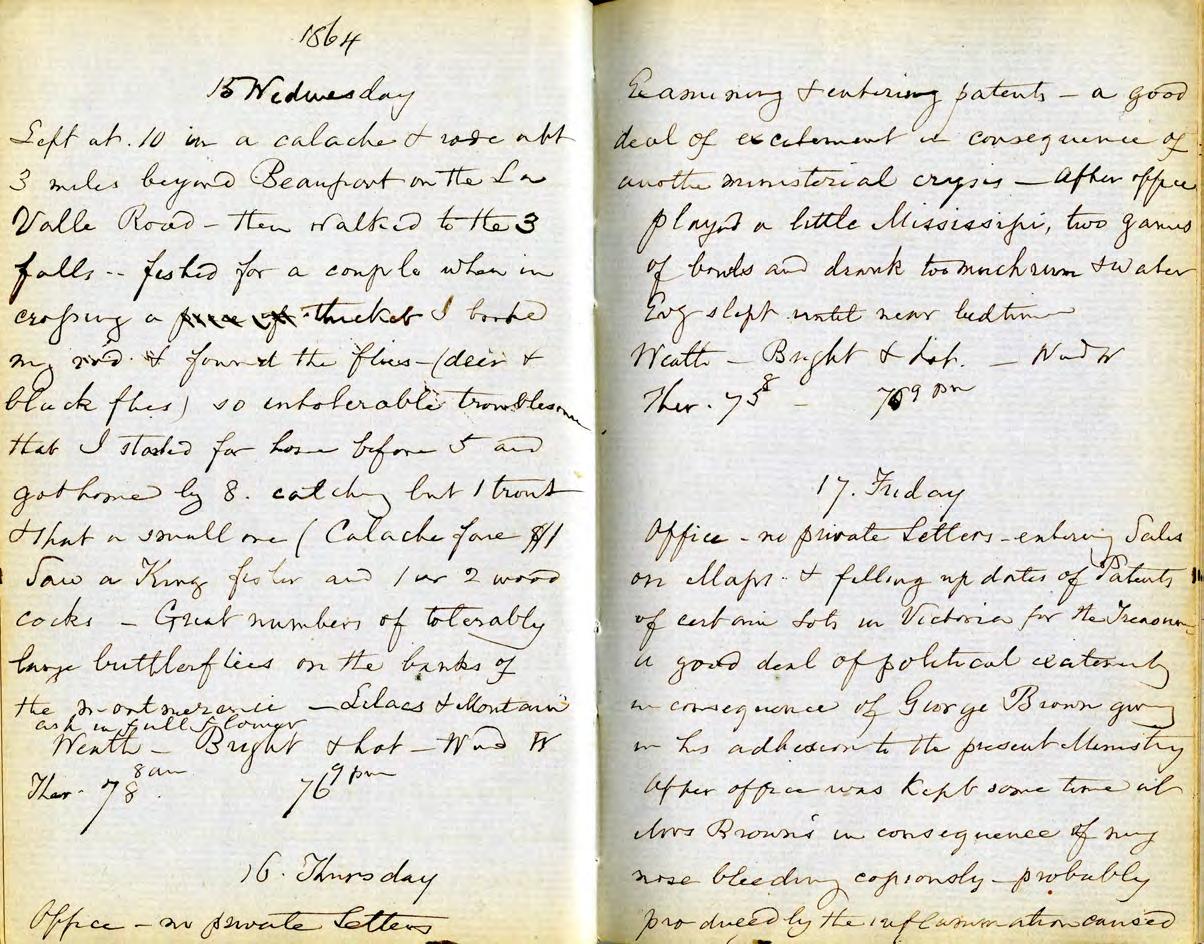 1864
15 Wednesday
Left at 10 in a calache & rode abt
3 miles beyond Beauport on the La
Valle Road - then walked to the 3
falls -- fished for a couple when in
crossing a piece of thicket I broke
my rod & found the flies - (deer &
black flies) so intolerable troublesome
that I started for home before 5 and
got home by 8. catching but 1 trout
& that a small one ( Calache fare $1
Saw a King fisher and 1 or 2 wood
cocks - Great numbers of tolerably
large buttlerflies on the banks of
the montmerancie - Lilacs & Mountain
ash in full flower
Weath - Bright & hot - Wind W
Ther. 78 8 am 76 9 pm
16. Thursday
Office - no private Letters
Examining & entering patents - a good
deal of excitement in consequence of
another ministerial crysis - After office
played a little Mississipi, two games
of bowls and drank too much rum & water
Evg slept until near bedtime
Weath - Bright & hot. - Wind W
Ther. 75 8 - 70 9 pm
17. Friday
Office - no private Letters - entering Sales
on Maps. & filling up dates of Patents
of certain Lots in Victoria for the Treasurer
a good deal of political excitement
in consequence of George Brown giving
in his adhesion to the present Ministry
After office was Kept some time at
Mrs Brown's in consequence of my
nose bleeding copiously - probably
produced by the inflammation caused